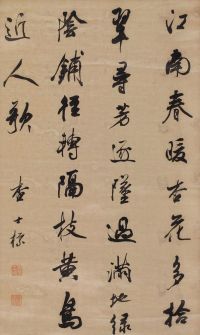 江南春暖杏花多拾
翠尋芳逐隊過滿地綠
陰鋪徑轉隔枝黃鳥
近人歌
查士標